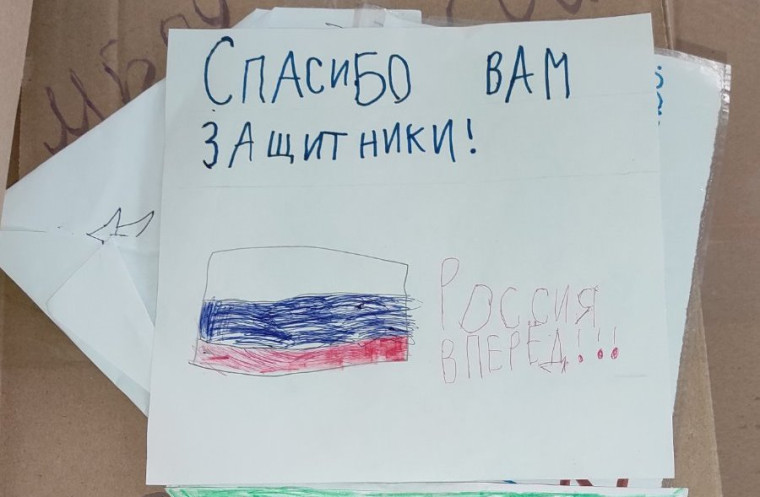 СПАСИБО ВАМ
ЗАЩИТНИКИ!
РОССИЯ
ВПЕРЁД!!!